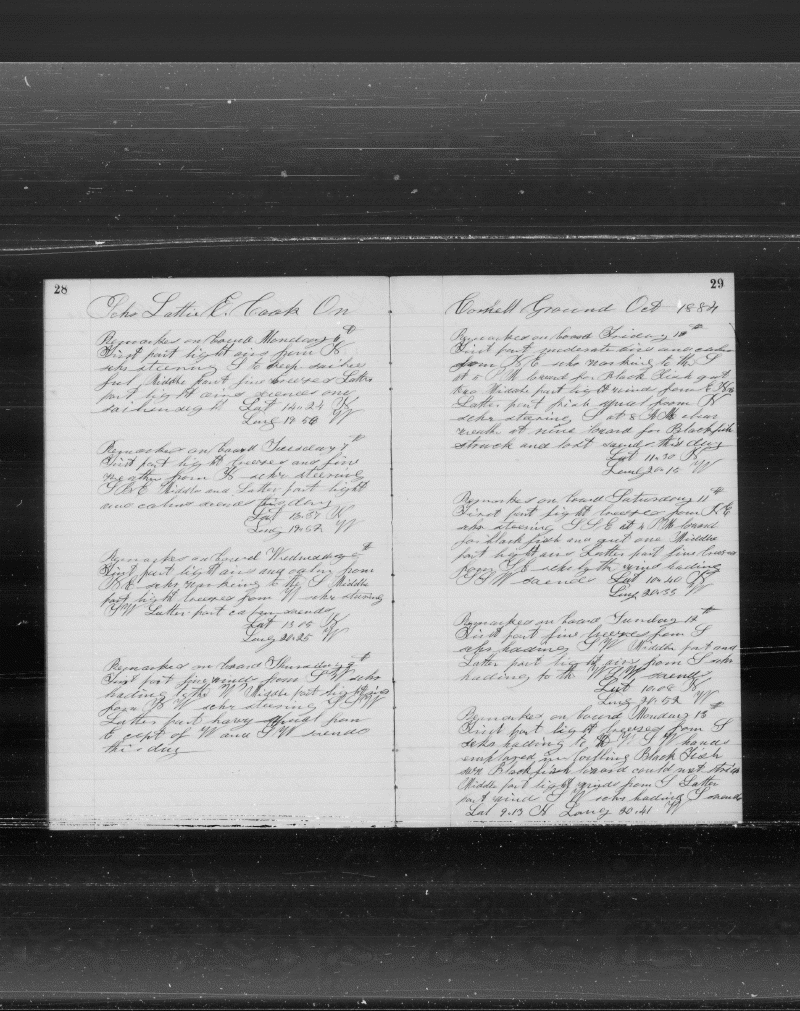 28
Schr Lottie E. Cook On
Remarkes on board Monday 6th
First part light airs from N
schr steering S E deep sailes
ful Middle part fine breezes Latter
part light airs soends one
sail in sight Lat 14.24 N
Long 19.56 W
Remarkes on board Tuesday 7th
First part light breezes and fine
weather from N schr steering
Middle and Latter part light
and calms soends day
Lat 13.57 N
Long 19.52 W
Remarkes on board Wednesday 8th
First part light airs and calm from
N E schr working to the S Middle
part light breezes from N schr steering
S W Latter part calm soends
Lat 13.05 N
Long 20.25 W
Remarkes on board Thursday 9th
First part fine winds from S W schr
hading to the W Middle part light airs
from N W schr steering S S W
Latter part heavy squal from
to W and S W soends
this day
29
Ground Oct 1884
Remarkes on board Friday 10th
First part moderate airs and calm
from N E schr working to the S
at 5 P M lowered for Black Fish got
one Middle part light winds from E N E
Latter part brisk squal from N
schr stearing S at 8 A M clear
weath at nine lowerd for Blackfish
struck and lost soends this day
Lat 11.30 N
Long 20.16 W
Remarkes on board Saturday 11th
First part light breezes from N E
schr steering S S E at 4 P M lowerd
for black fish and got one Middle
part light airs Latter part fine breezes
from S E schr by the wind hading
S S W soends Lat 10.40 N
Long 20.33 W
Remarkes on board Sunday 12th
First part fine breezes from S
schr hading S W Middle part and
Latter part light airs from S schr
hading to the W S W soends
Lat 10.08 N
Long 20.52 W
Remarkes on board Monday 13th
First part light breezes from S
schr hading to the W S W hands
employed in boilling Black Fish
saw Blackfish lowerd could not strike
Middle part light winds from S Latter
part wind S W schr hading S soends
Lat 9.13 N Long 20.41 W